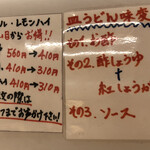 ル・レモンハイ
日からお得!!
560円→410円
410円→310円
410→310円
次の際は
までお声がけ下さい!
皿うどん味変
その1.お酢
その2.酢しょうゆ
紅しょうが
その3.ソース